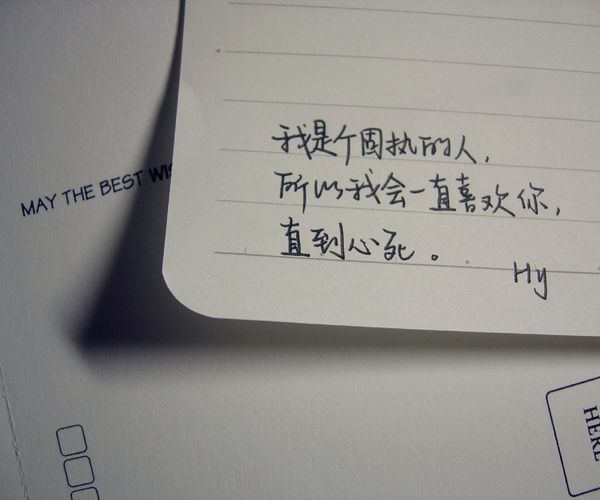 我是个固执的人,
所以我会一直喜欢你,
直到心死。
Hy
MAY THE BEST
HERE